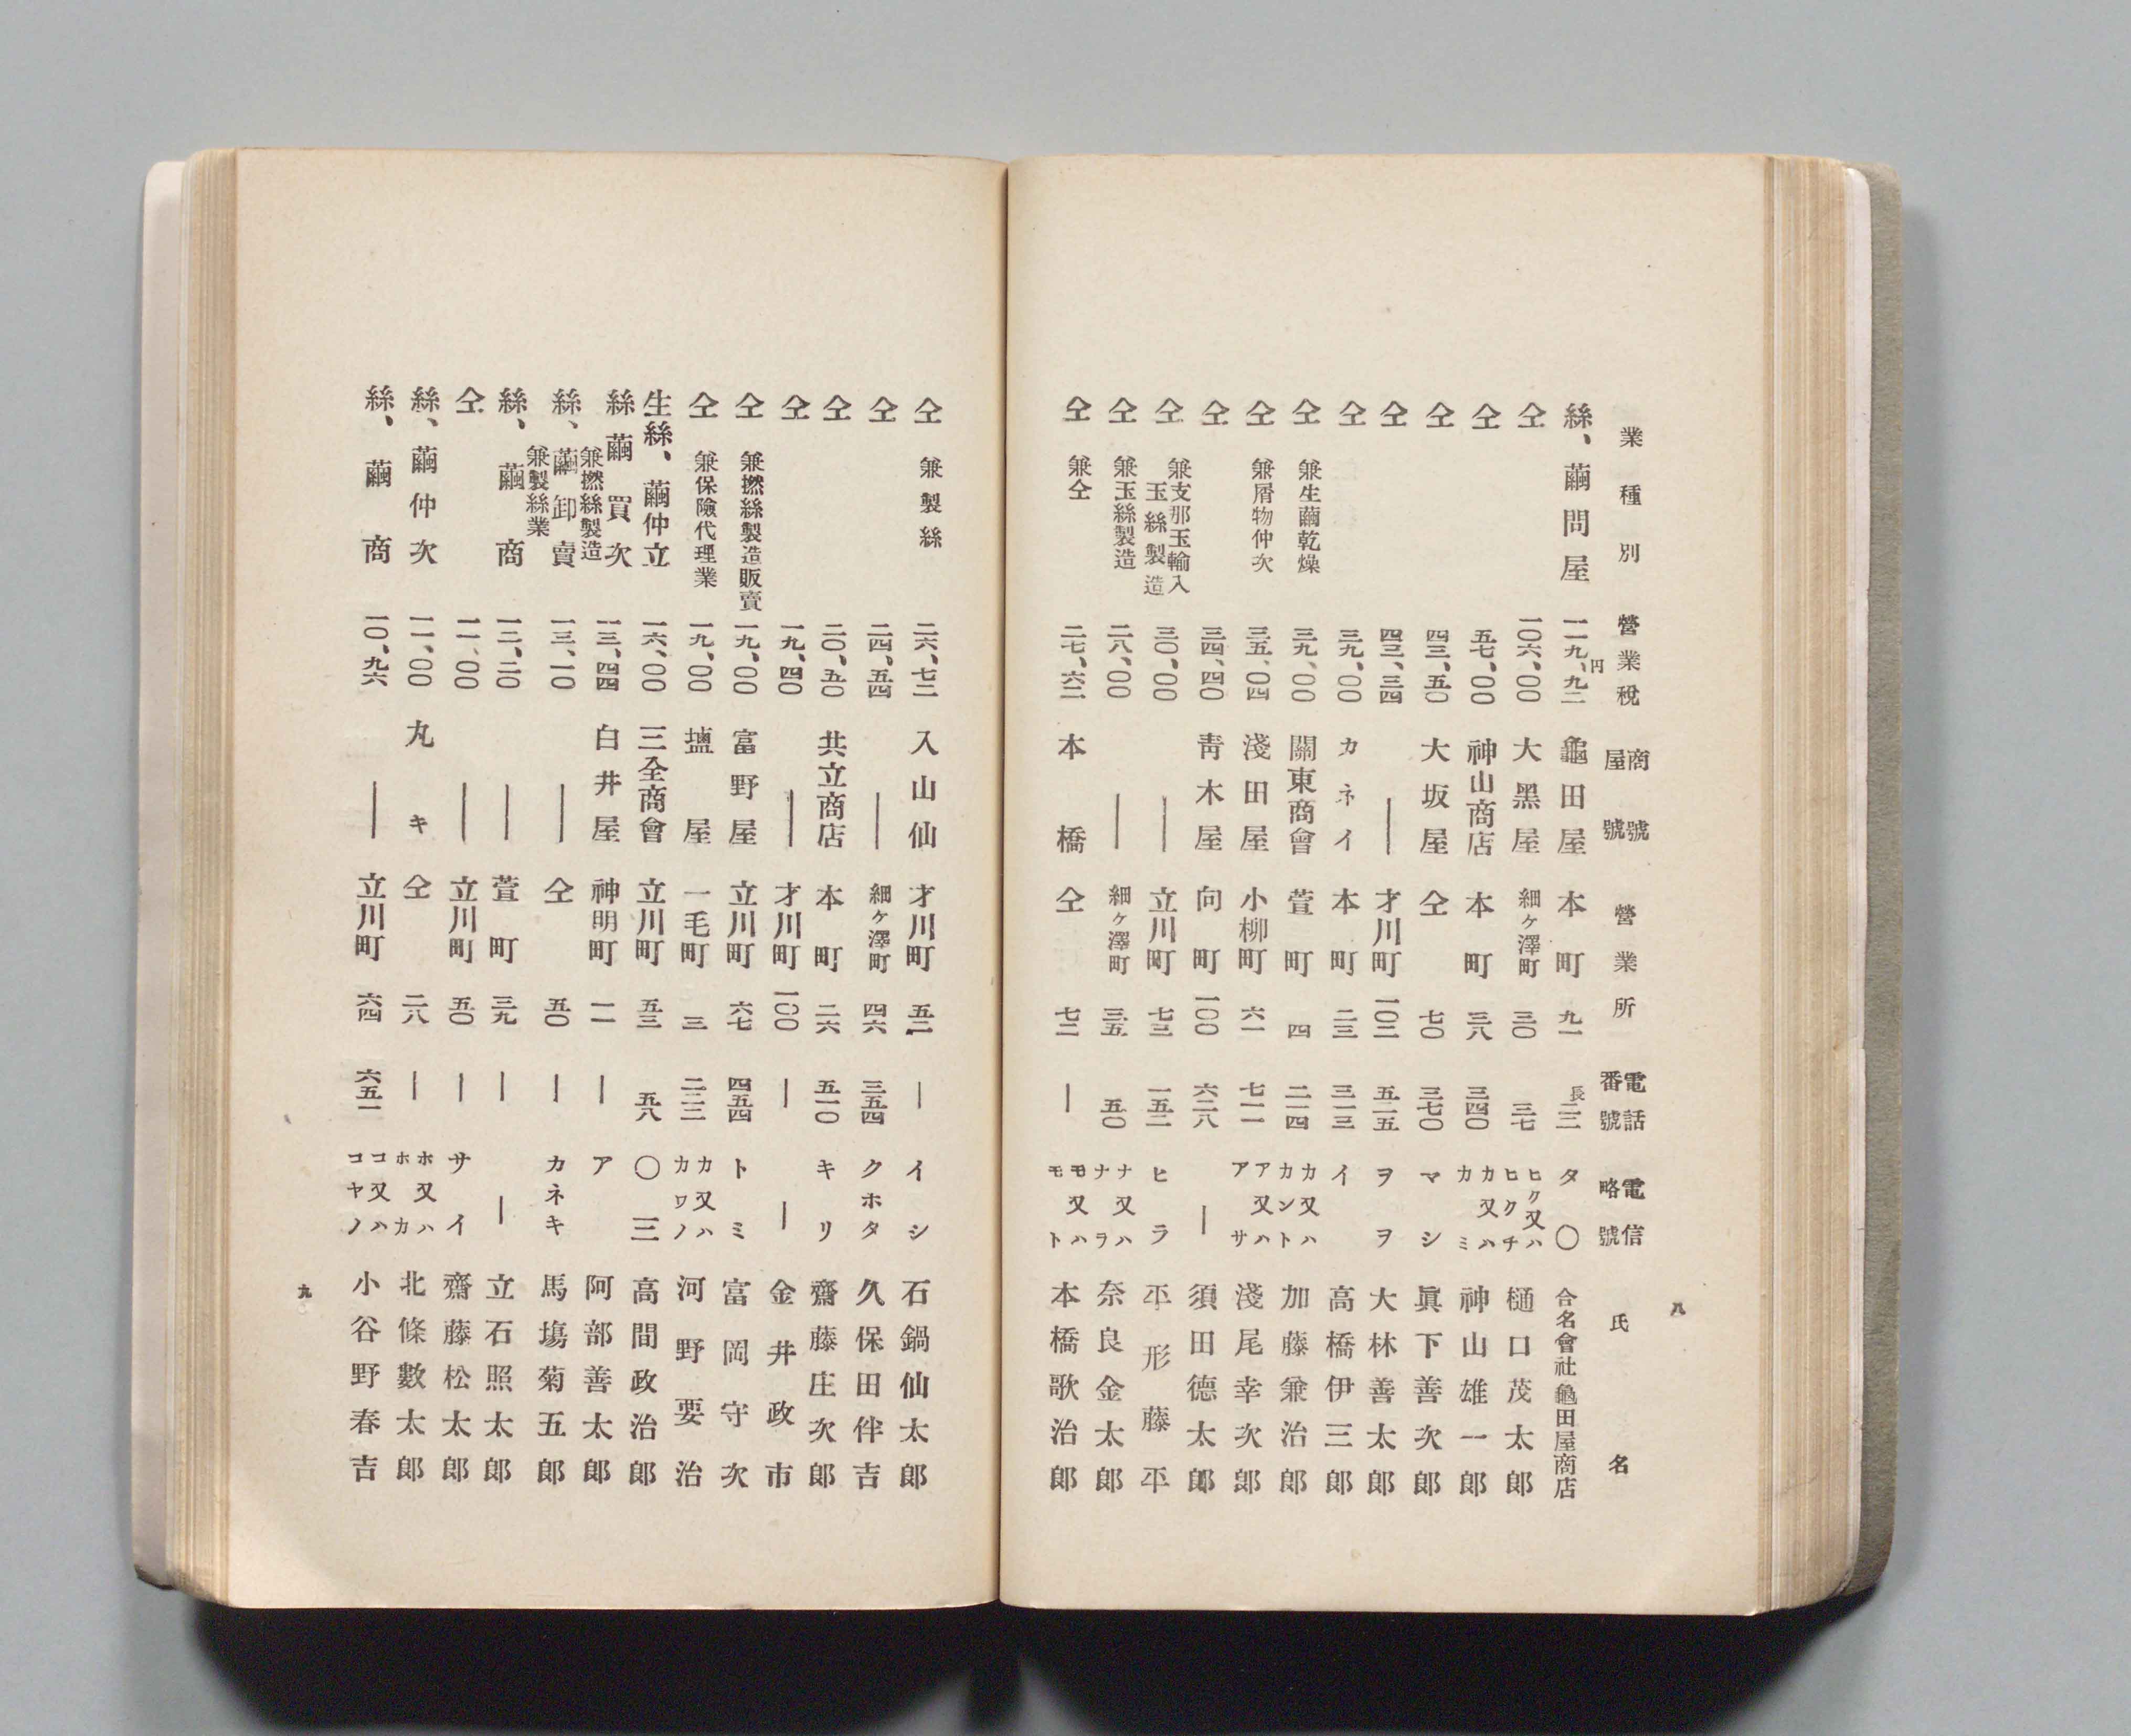 八
業種別 營業稅 商號屋號 營業所 電話番號 電信略號 氏名
絲、繭問屋 一一九、九二円 龜田屋 本町 九一 長二三 タ〇 合名會社龜田屋商店
仝 一〇六、〇〇 大黑屋 細ヶ澤町 三〇 三七 ヒク又ハヒクチ 樋口茂太郞
仝 五七、〇〇 神山商店 本町 三八 三四〇 カ又ハカミ 神山雄一郞
仝 四三、五〇 大坂屋 仝 七〇 三七〇 マシ 眞下善次郞
仝 四三、三四 ― 才川町 一〇二 五二五 ヲヲ 大林善太郞
仝 三九、〇〇 カネイ 本町 二三 三一三 イ 高橋伊三郞
仝 兼生繭乾燥 三九、〇〇 關東商會 萱町 四 二一四 カ又ハカント 加藤兼治郞
仝 兼屑物仲次 三五、〇四 淺田屋 小柳町 六一 七一一 ア又ハアサ 淺尾幸次郞
仝 三四、四〇 靑木屋 向町 一〇〇 六二八 ― 須田德太郞
仝 兼支那玉輸入玉絲製造 三〇、〇〇 ― 立川町 七三 一五二 ヒラ 平形藤平
仝 兼玉絲製造 二八、〇〇 ― 細ヶ澤町 三五 五〇 ナ又ハナラ 奈良金太郞
仝 兼仝 二七、六二 本橋 仝 七二 ― モ又ハモト 本橋歌治郞
仝 兼製絲 二六、七二 入山仙 才川町 五二 ― イシ 石鍋仙太郞
仝 二四、五四 ― 細ヶ澤町 四六 三五四 クホタ 久保田伴吉
仝 二〇、五〇 共立商店 本町 二六 五一〇 キリ 齋藤庄次郞
仝 一九、四〇 ― 才川町 一〇〇 ― ― 金井政市
仝 兼撚絲製造販賣 一九、〇〇 富野屋 立川町 六七 四五四 トミ 富岡守次
仝 兼保險代理業 一九、〇〇 塩屋 一毛町 三 二二二 カ又ハカワノ 河野要治
生絲、繭仲立 一六、〇〇 三全商會 立川町 五三 五八 〇三 高間政治郞
絲繭買次 兼撚絲製造 一三、四四 白井屋 神明町 一一 ― ア 阿部善太郞
絲、繭卸賣 兼製絲業 一三、一〇 ― 仝 五〇 ― カネキ 馬塲菊五郞
絲、繭商 一二、二〇 ― 萱町 三九 ― ― 立石照太郞
仝 一一、〇〇 ― 立川町 五〇 ― サイ 齋藤松太郞
絲、繭仲次 一一、〇〇 丸キ 仝 二八 ― ホ又ハホカ 北條數太郞
絲、繭商 一〇、九六 ― 立川町 六四 六五一 コ又ハコヤノ 小谷野春吉
九